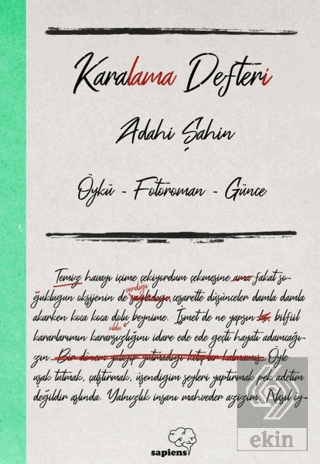 Karalama Defteri
Adahi Şahin
Öykü - Fotoroman - Günce
Temiz havayı içime çekiyordum çekmesine ama fakat so-
verdiği
ğukluğun oksijenin de cesaretle düşünceler damla damla
akarken koca koca dolu beynime. İsmet de ne yapsın bilfiil
oldu
kararlarımın kararsızlığını idare ede ede geçti hayatı adamcağı-
zın. Bir dönem kitaplar kalmamış. Öyle
uşak tutmak, çalıştırmak, üşendiğim şeyleri yaptırmak pek adetim
değildir aslında. Yalnızlık insanı mahveder azizim. Nasıl iy-
sapiens
ekin